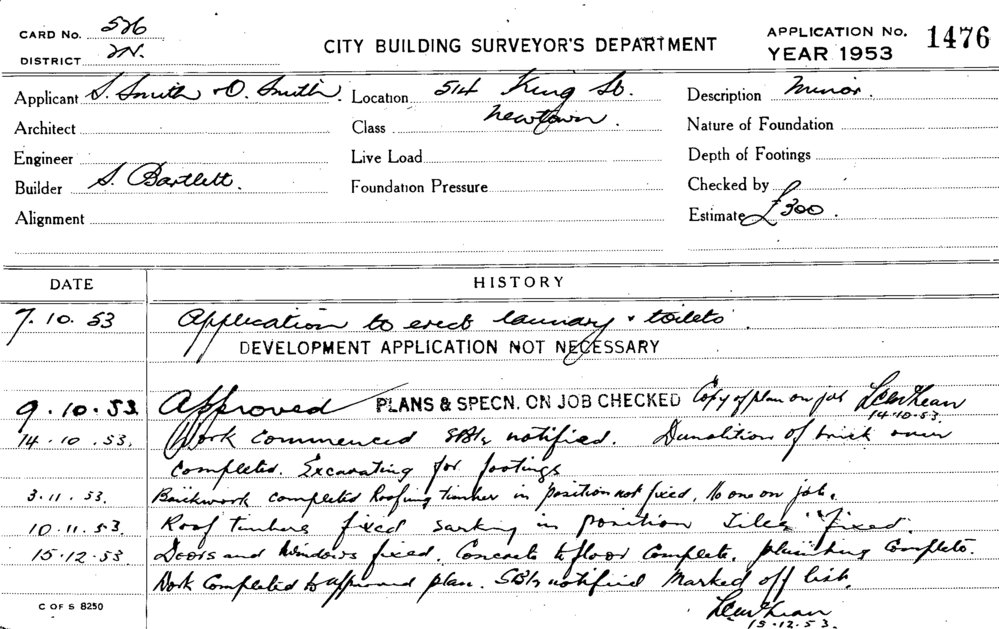 CARD No. 526
DISTRICT N.
CITY BUILDING SURVEYOR'S DEPARTMENT
APPLICATION No. 1476
YEAR 1953
Applicant S. Smith & D. Smith. Location 514 King St. Newtown. Description Minor.
Architect Class Nature of Foundation
Engineer Live Load Depth of Footings
Builder S. Bartlett. Foundation Pressure Checked by
Alignment Estimate £300.
DATE HISTORY
7.10.53 Application to erect laundry & toilets
DEVELOPMENT APPLICATION NOT NECESSARY
9.10.53 Approved PLANS & SPECN. ON JOB CHECKED Copy of plan on job
14.10.53
14.10.53. Work commenced notified. Demolition of brick oven
completed. Excavating for footings
3.11.53. Brickwork completed Roofing timber in position not fixed. No one on job.
10.11.53 Roof timbers fixed sarking in position Tiles "fixed
15.12.53 Doors and windows fixed. Concrete to floor complete. plumbing complete.
Work Completed to approved plan. notified Marked off list.
15.12.53.
C OF S 8250